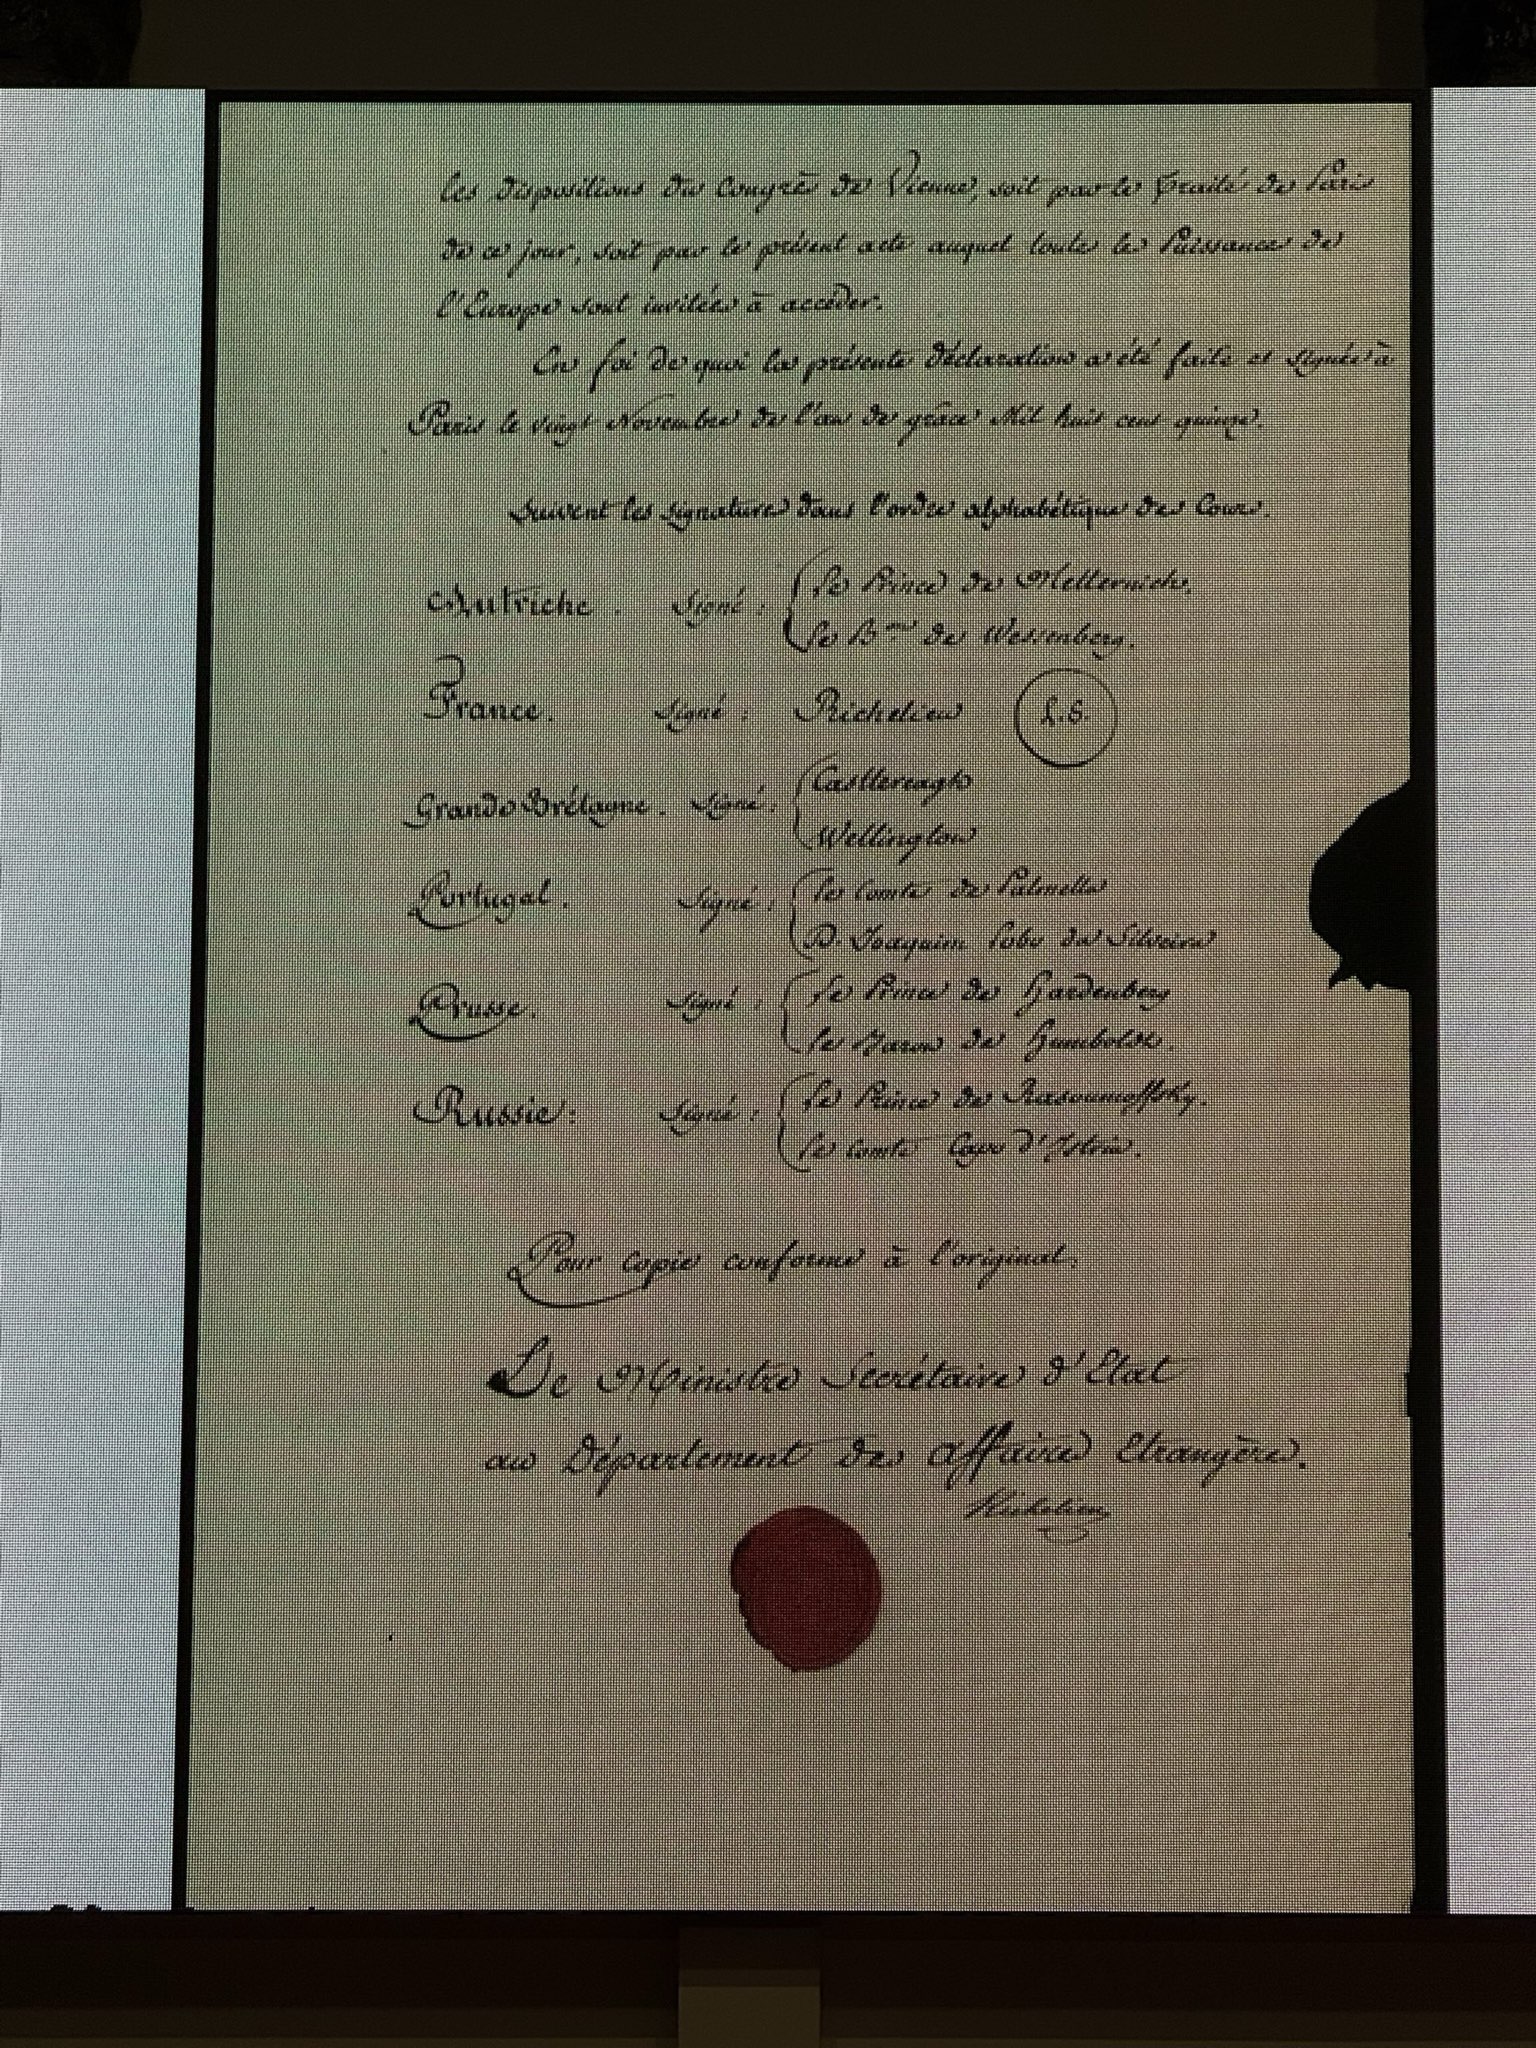 les dispositions du Congrès de Vienne, soit par le Traité de Paris
de ce jour, soit par le présent acte auquel toutes les Puissances de
l'Europe sont invitées à accéder.
En foi de quoi la présente déclaration a été faite et signée à
Paris le vingt Novembre de l'an de grâce Mil huit cent quinze.
Suivent les signatures dans l'ordre alphabétique des Cours.
Autriche. Signé : Le Prince de Metternich.
Le B.on de Wessenberg.
France. Signé : Richelieu L.S.
Grande Brétagne. Signé : Castlereagh
Wellington
Portugal. Signé : Le Comte de Palmella
D. Joaquim Lobo da Silveira
Prusse. Signé : Le Prince de Hardenberg
Le Baron de Humboldt.
Russie : Signé : Le Prince de Rasoumoffsky.
Le Comte Capo d'Istria.
Pour copie conforme à l'original.
Le Ministre Secrétaire d'Etat
au Département des affaires Etrangères.
Richelieu